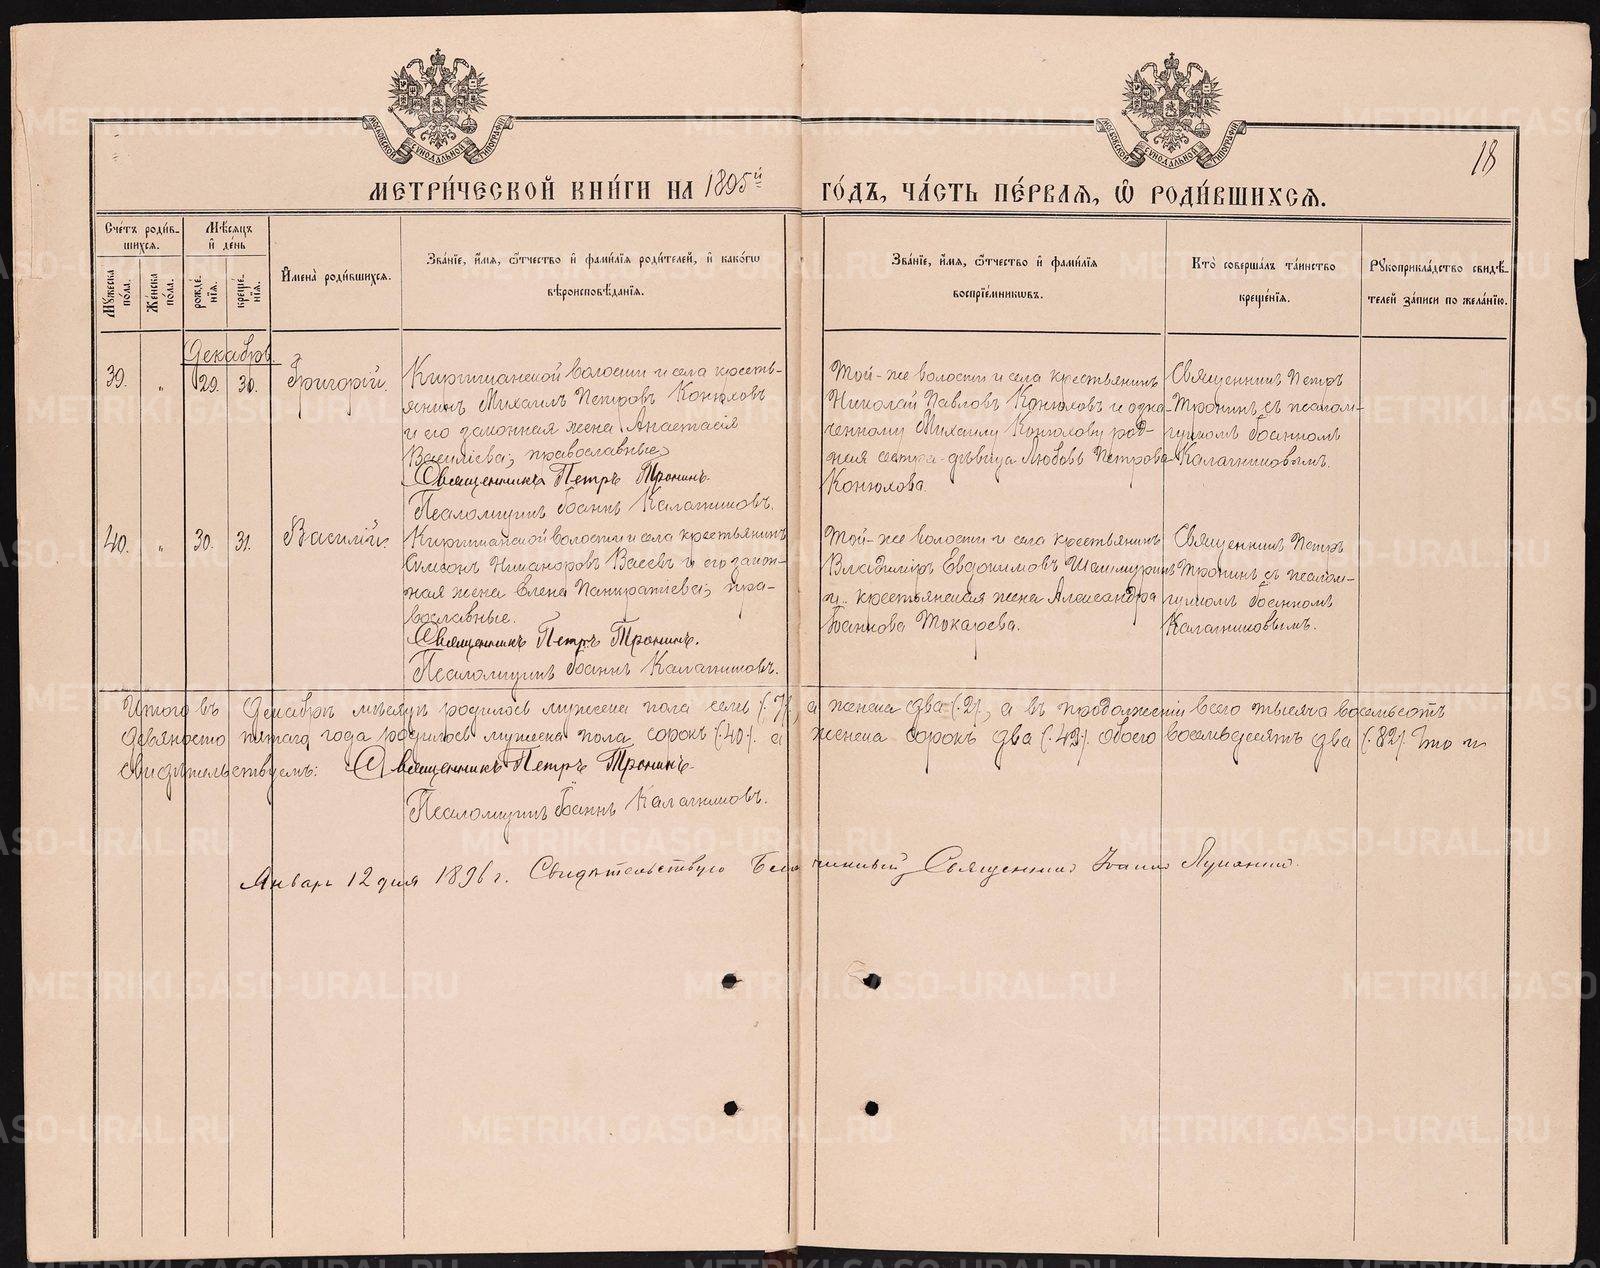 МОСКОВСКОЙ СѴНОДАЛЬНОЙ ТИПОГРАФІИ
МОСКОВСКОЙ СѴНОДАЛЬНОЙ ТИПОГРАФІИ
18
МЕТРИ́ЧЕСКОЙ КНИ́ГИ НА 1895й ГО́ДЪ, ЧА́СТЬ ПЕ́РВАЯ, Ѽ РОДИ́ВШИХСѦ.
Сче́тъ роди́в-
шихся.
Мѣ́сяцъ
и҆ де́нь
Мꙋ́жеска по́ла.
Же́нска по́ла.
рожде́-
нїя.
креще́-
нїя.
И҆мена̀ роди́вшихся.
Зва́нїе, и҆́мя, ѻ҆́тчество и҆ фами́лїя роди́телей, и҆ како́гѡ
вѣроисповѣ́данїя.
Зва́нїе, и҆́мя, ѻ҆́тчество и҆ фами́лїя
воспрїе́мникѡвъ.
Кто̀ соверша́лъ та́инство
креще́нїя.
Рꙋкоприкла́дство свидѣ́-
телей за́писи по жела́нїю.
Декабрь.
39. „ 29. 30. Григорій.
Киргишанской волости и села кресть-
янинъ Михаилъ Петровъ Конюховъ
и его законная жена Анастасія
Василіева; православные
Священникъ Петръ Тронинъ.
Псаломщикъ Іоаннъ Калашниковъ.
Той-же волости и села крестьянинъ
Николай Павловъ Конюховъ и озна-
ченному Михаилу Конюхову род-
ная сестра девица Любовь Петрова
Конюхова.
Священникъ Петръ
Тронинъ съ псалом-
щикомъ Іоанномъ
Калашниковымъ.
40. „ 30. 31. Василій.
Киргишанской волости и села крестьянинъ
Симеонъ Никаноровъ Васевъ и его закон-
ная жена Елена Панкратіева; пра-
вославные.
Священникъ Петръ Тронинъ.
Псаломщикъ Іоаннъ Калашниковъ.
Той-же волости и села крестьянинъ
Владиміръ Евдокимовъ Шашмуринъ
и крестьянская жена Александра
Іоаннова Токарева.
Священникъ Петръ
Тронинъ съ псалом-
щикомъ Іоанномъ
Калашниковымъ.
Итого въ Декабрѣ мѣсяцѣ родилось мужеска пола семь /.7/., а женска два /.2/., а въ продолженіи всего тысяча восемьсотъ
девяносто пятаго года родилось мужеска пола сорокъ /.40/. а женска сорокъ два /.42/. обоего восемьдесятъ два /.82/. что и
свидѣтельствуемъ: Священникъ Петръ Тронинъ.
Псаломщикъ Іоаннъ Калашниковъ.
Январь 12 дня 1896 г. Свидѣтельствую Благочинный Священникъ Іоаннъ